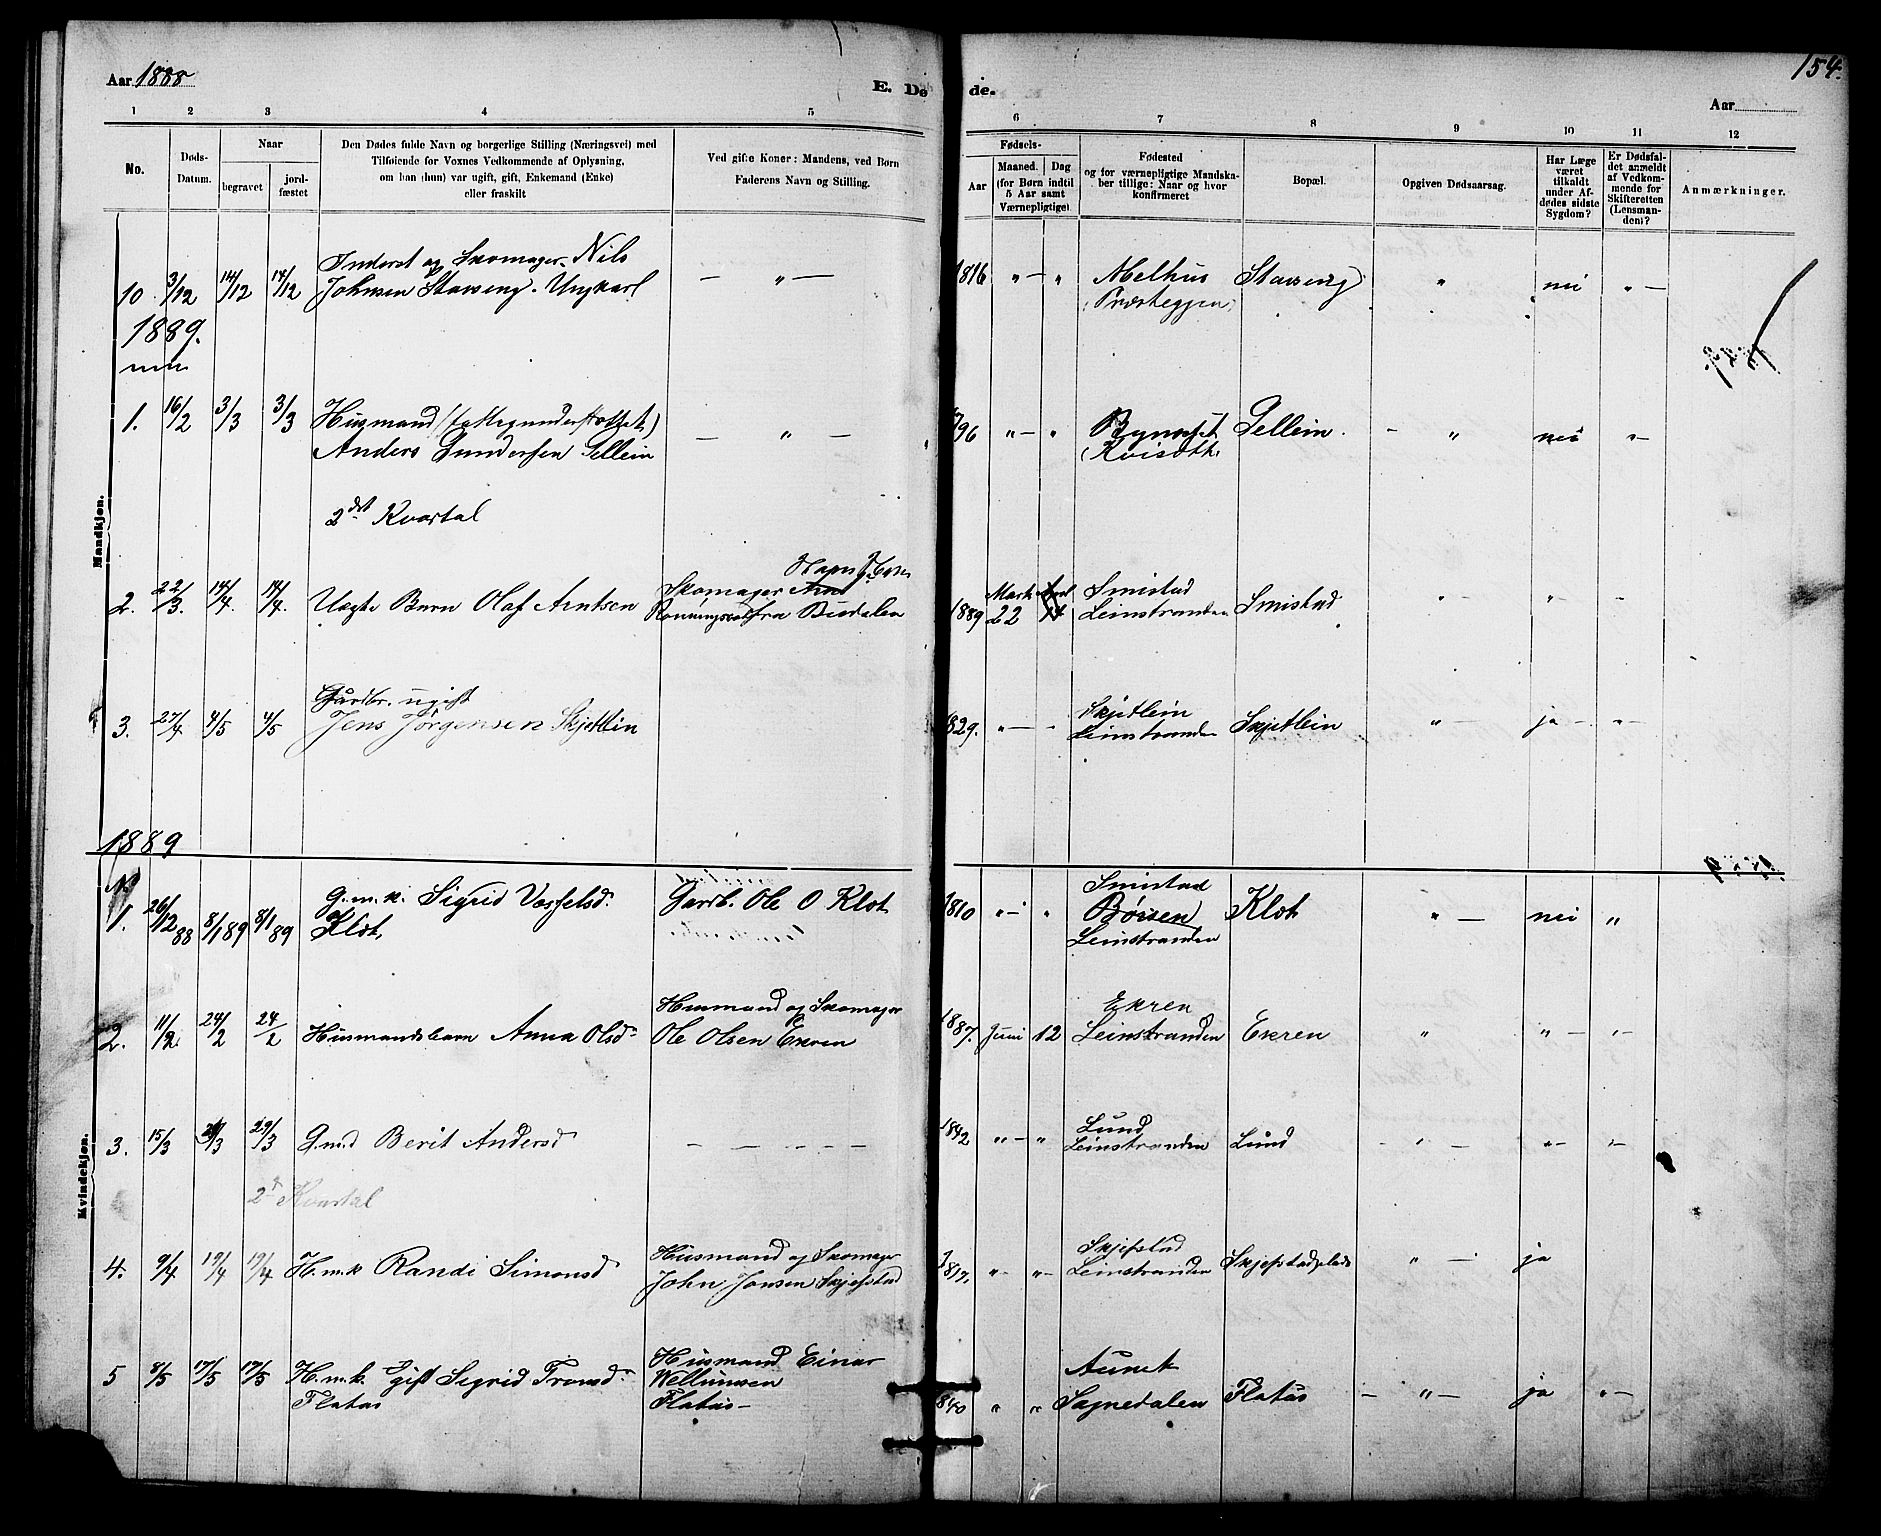 Aar 1888
E. Dø
de.
154.
Aar
1 2 3 4 5 6 7 8 9 10 11 12
No.
Døds-
Datum.
Naar
begravet
jord-
fæstet
Den Dødes fulde Navn og borgerlige Stilling (Næringsvei) med
Tilføiende for Voxnes Vedkommende af Oplysning,
om han (hun) var ugift, gift, Enkemand (Enke)
eller fraskilt
Ved gifte Koner: Mandens, ved Børn
Faderens Navn og Stilling.
Fødsels-
Aar
Maaned.
Dag
(for Børn indtil
5 Aar samt
Værnepligtige).
Fødested
og for værnepligtige Mandska-
ber tillige: Naar og hvor
konfirmeret
Bopæl.
Opgiven Dødsaarsag.
Har Læge
været
tilkaldt
under Af-
dødes sidste
Sygdom?
Er Dødsfal-
det anmeldt
af Vedkom-
mende for
Skifteretten
(Lensman-
den)?
Anmærkninger.
Mandkjøn.
Inderst og Skomager Nils
10 3/12 14/12 14/12 Johnsen Stavseng. Ungkarl — " — 1816 " — " Melhus Stavseng " nei " —
Præsteggjen
1889.
1. 16/2 3/3 3/3 Husmand (fattigunderstøttet) — " — 96 " — " Bynesset Sellein. — " nei " —
Anders Gundersen Sellein
2det Kvartal
2. 22/3. 14/4. 14/4. Uægte Barn Olaf Arntsen Skomager
fra Budalen 1889 Marts 22 Smistad
Leinstranden Smistad " — " — " —
Gårdbr. ugift
3. 27/4 4/5 4/5 Jens Jørgensen Skjetlein 1829. " — " Skjetlein
Leinstranden Skjetlein " — ja — " —
1889
Kvindekjøn.
1. 26/12 88 8/1 89 8/1 89 G.m.k. Sigrid
Klæt Gaardb. Ole O Klæt 1810 " — " Smistad
Børsen
Leinstranden Klæt " — nei "
2. 11/2 24/2 24/2 Husmandsbarn Anna Olsd. Husmand og Skomager
Ole Olsen Ekren 1887. Juni 12 Ekren
Leinstranden Ekren " " — " —
3. 15/3 29/3 Berit Andersd — — — — 1842 " — " Lund
Leinstranden Lund — " — " — " —
2d Kvartal
4. 9/4 19/4 19/4 H.m.k Randi Simonsd Husmand og Skomager
John Jonsen Skjefstad " — " — Skjefstad
Leinstranden Skjefstadplads " — ja
5 8/5 17/5 17/5 H.m.k. gift Sigrid
Flatås Husmand Einar
Flatås — 1840 " " Aunet
Sognedalen Flatås — " — ja " —